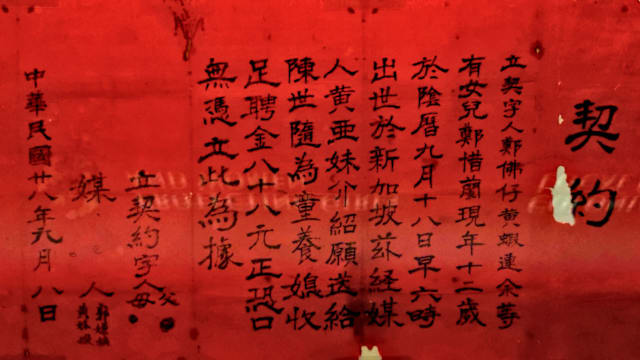 契約
立契字人鄭佛仔黃蝦達余等
有女兒鄭惜蘭現年十二歲
於陰曆九月十八日早六時
出世於新加坡茲経媒
人黄亜妹介紹願送給
陳世隨為童養媳收
足聘金八十八元正恐口
無憑立此為據
立契約字人父母
媒人
中華民國廿八年九月八日